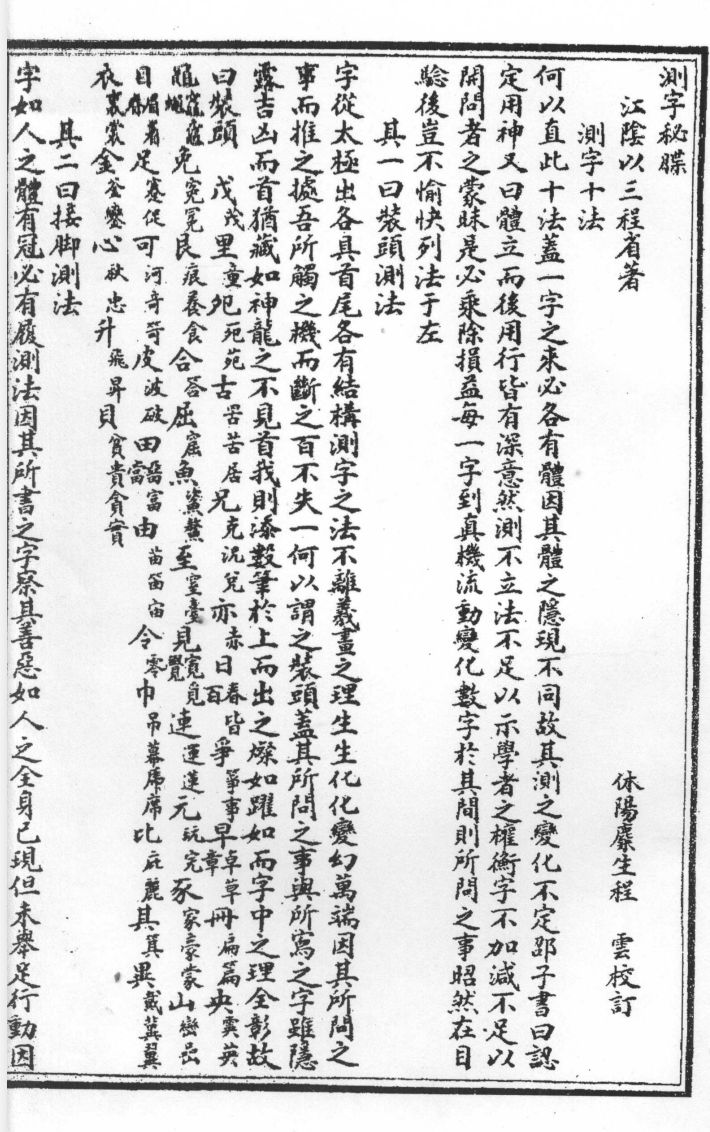 測字秘牒
江陰以三程省著　休陽麋生程　雲校訂
測字十法
何以直此十法蓋一字之來必各有體因其體之隱現不同故其測之變化不定邵子書曰認
定用神又曰體立而後用行皆有深意然測不立法不足以示學者之權衡字不加減不足以
開問者之蒙昧是必乘除損益每一字到真機流動變化數字於其間則所問之事昭然在目
驗後豈不愉快列法于左
其一曰裝頭測法
字從太極出各具首尾各有結構測字之法不離羲畫之理生生化化變幻萬端因其所問之
事而推之據吾所觸之機而斷之百不失一何以謂之裝頭蓋其所問之事與所寫之字雖隱
露吉凶而首猶藏如神龍之不見首我則添數筆於上而出之燦如躍如而字中之理全彰故
曰裝頭　戊茂里童夗宛苑古苦居兄克況兌亦赤日春百皆爭箏事早卓草章冊扁篇央霙英
黽竈免冤冕艮痕養食合答屈窟魚鯊鰲至窒臺見寬覓覽連運蓮元玩完豕家豪蒙山巒岊
目眉着足蹇促可河奇苛皮波破田富由苗笛宙令零巾吊幕席比庇麗其箕異戴冀翼
衣裏裳金釜鑾心秋忠升飛昇貝賓貴貪實
其二曰接脚測法
字如人之體有冠必有履測法因其所書之字察其善惡如人之全身已現但未舉足行動因